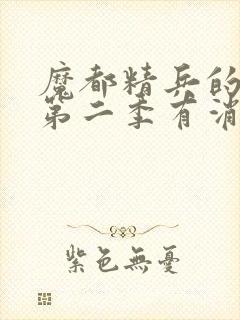 魔都精兵的
第二季有消
紫色無憂